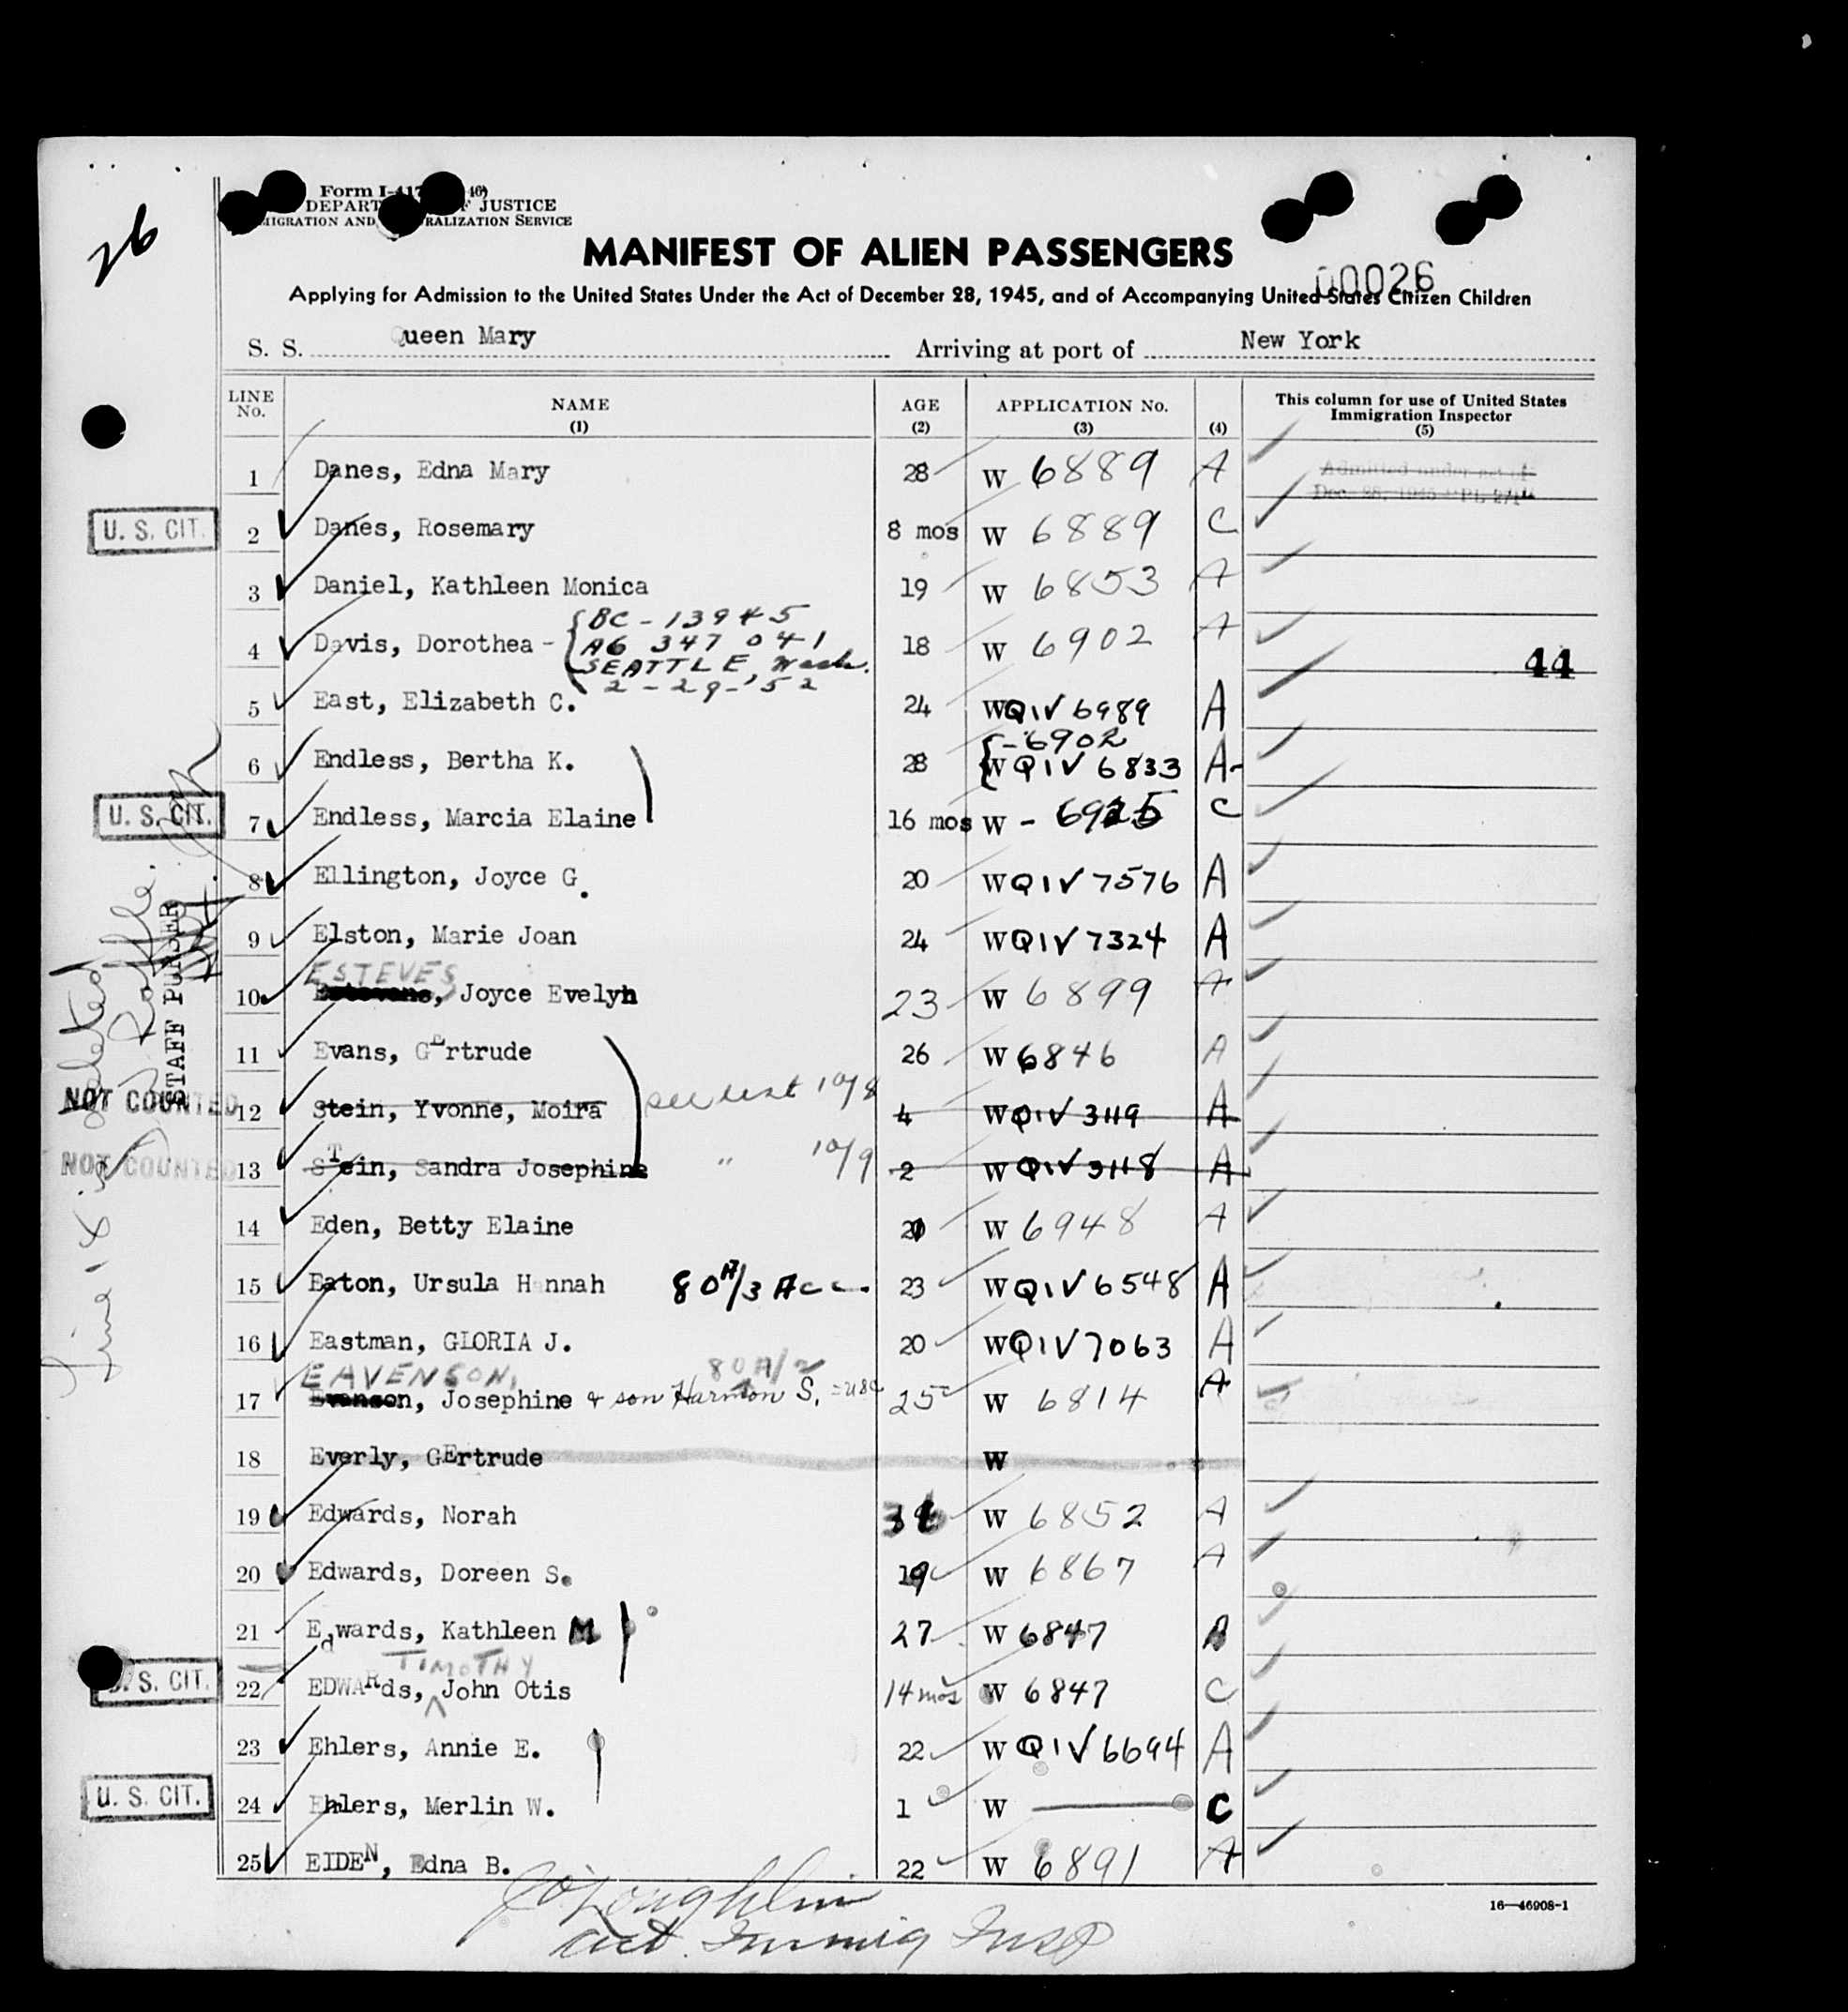 26
Form I-417 46)
DEPART F JUSTICE
MIGRATION AND RALIZATION SERVICE
MANIFEST OF ALIEN PASSENGERS
00026
Applying for Admission to the United States Under the Act of December 28, 1945, and of Accompanying United States Citizen Children
S. S. Queen Mary Arriving at port of New York
LINE No. NAME (1) AGE (2) APPLICATION No. (3) (4) This column for use of United States Immigration Inspector (5)
1 Danes, Edna Mary 28 W 6889 A Admitted under act of
Dec. 28, 1945 PL 271
U. S. CIT. 2 Danes, Rosemary 8 mos W 6889 C
3 Daniel, Kathleen Monica 19 W 6853 A
4 Davis, Dorothea - 18 W 6902 A
BC - 13945
A6 347 041
SEATTLE, Wash.
2-29-'52
44
5 East, Elizabeth C. 24 W QIV 6989 A
- 6902
6 Endless, Bertha K. 28 W QIV 6833 A-
U. S. CIT. 7 Endless, Marcia Elaine 16 mos W - 6925 C
8 Ellington, Joyce G. 20 W QIV 7576 A
9 Elston, Marie Joan 24 W QIV 7324 A
ESTEVES
10 Joyce Evelyn 23 W 6899 A
11 Evans, Gertrude 26 W 6846 A
NOT COUNTED 12 Stein, Yvonne, Moira see list 10/8 4 W QIV 3119 A
NOT COUNTED 13 STein, Sandra Josephine " 10/9 2 W QIV 3118 A
14 Eden, Betty Elaine W 6948 A
15 Eaton, Ursula Hannah 80A/3 Acc. 23 W QIV 6548 A
16 Eastman, GLORIA J. 20 W QIV 7063 A
EAVENSON, 80A/2
17 Evanson, Josephine & son Harmon S. = USC 25 W 6814 A
18 Everly, GErtrude W
19 Edwards, Norah W 6852 A
20 Edwards, Doreen S. 19 W 6867 A
21 Edwards, Kathleen M 27 W 6847 A
TIMOTHY
U. S. CIT. 22 EDWARds, John Otis 14 mos W 6847 C
23 Ehlers, Annie E. 22 W QIV 6694 A
U. S. CIT. 24 Ehlers, Merlin W. 1 W C
25 EIDEN, Edna B. 22 W 6891 A
STAFF PURSER
Line 18 is deleted
J O'Loughlin
act. Immig Insp
16—46908-1